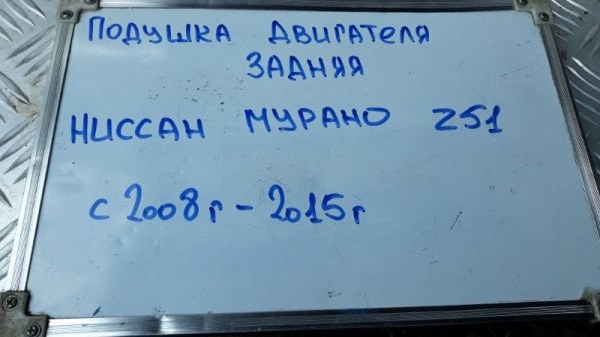 ПОДУШКА ДВИГАТЕЛЯ
ЗАДНЯЯ
НИССАН МУРАНО Z51
с 2008г - 2015г